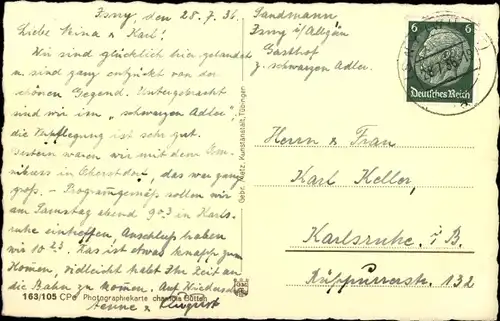 Isny, den 28.7.36.
Liebe & Karl!
Wir sind glücklich hier gelandet
u. sind ganz entzückt von der
schönen Gegend. Untergebracht
sind wir im „schwarzen Adler",
die Verpflegung ist sehr gut.
Gestern waren wir mit dem
in Oberstdorf, das war ganz
groß. – Programmgemäß sollen wir
am Samstag abend 9⁰³ in Karls-
ruhe eintreffen. Anschluß haben
wir 10²³. Das ist etwas knapp zum
Kommen, vielleicht habt Ihr Zeit an
die Bahn zu kommen. Auf Wiedersehen
Henne &
163/105 CPC Photographiekarte
Gebr. Metz, Kunstanstalt, Tübingen
Sandmann
Isny i/Allgäu
Gasthof
z. schwarzen Adler.
6 6
Deutsches Reich
Herrn u. Frau
Karl Keller,
Karlsruhe i. B.
Rüppurrerstr. 132